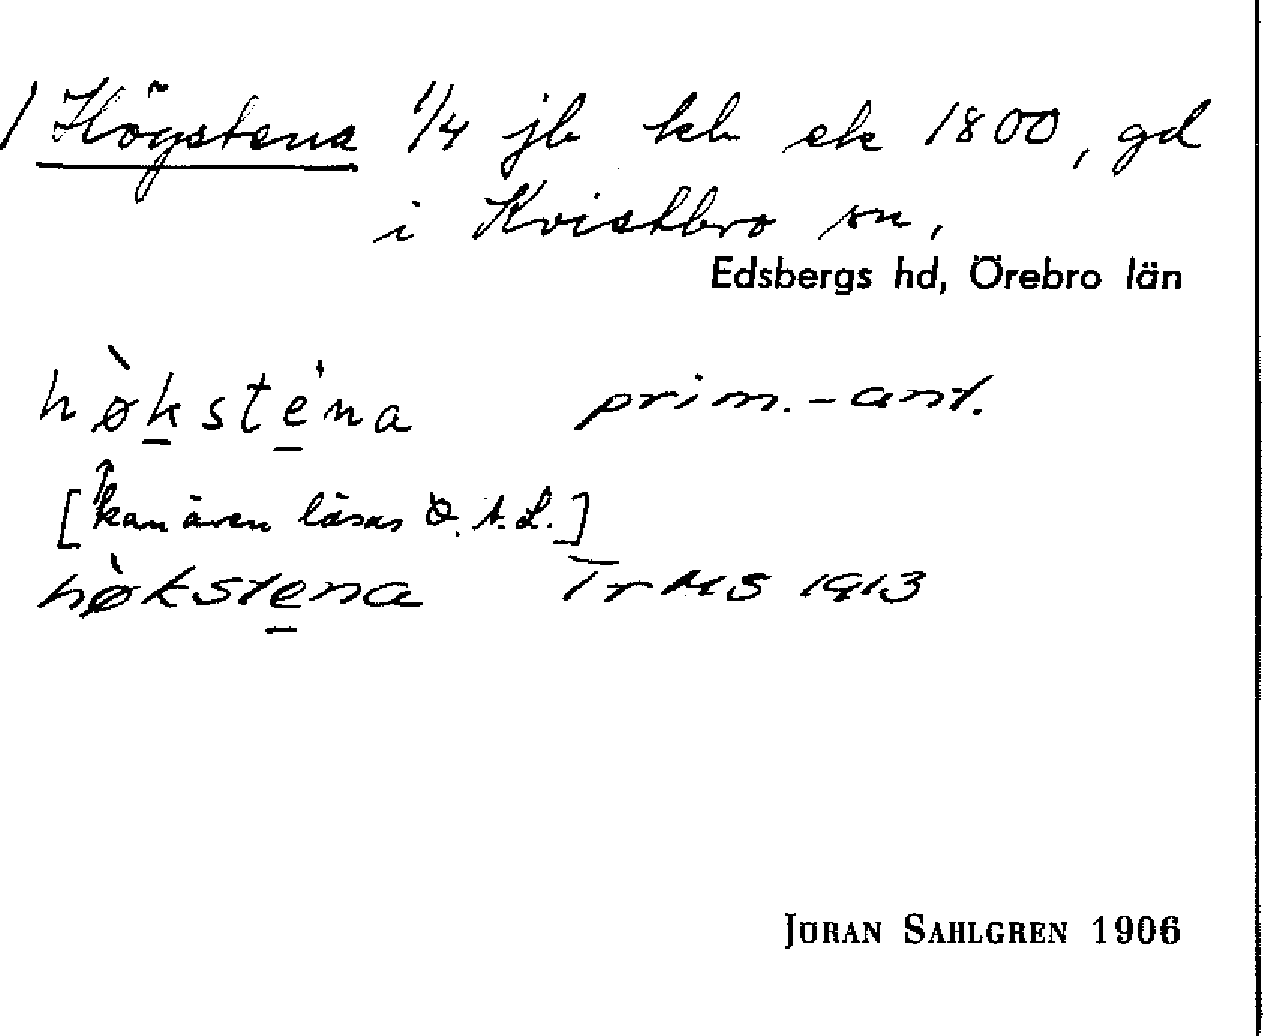 1 Högstena 1/4 jb kb ek 1800, gd
i Kvistbro sn,
Edsbergs hd, Örebro län
hø̀kste̍na prim.-ant.
[kan även läsas ò. A.L.]
hø̀kstena Tr MS 1913
JÖRAN SAHLGREN 1906